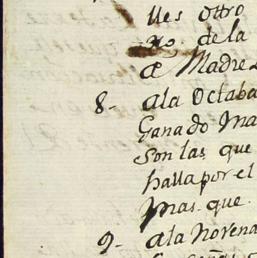 lles ottro
no de la
a Madre
8- ala Octaba
Ganado Ma
Son las que
halla por el
mas. que
9- ala Novena